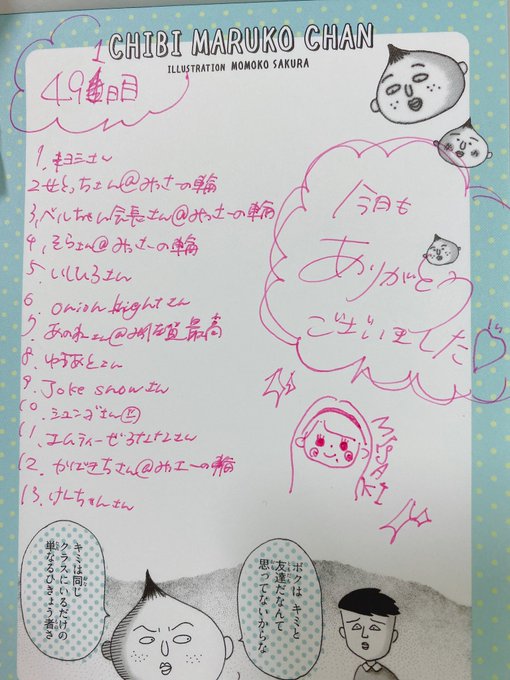 CHIBI MARUKO CHAN
ILLUSTRATION MOMOKO SAKURA
491日目
1, キヨミさん
2 せとっちさん@みっさーの輪
3, ベルちゃん会長さん@みっさーの輪
4, そらさん@みっさーの輪
5. いしひろさん
6. onion knightさん
7. あのねさん@
最高
8. ゆきあとさん
9. Joke snowさん
10. シュンさん
11. エムティーぜろさん
12. がびきちさん@みっさーの輪
13. けんちゃんさん
今日も
ありがとう
ございました
MISAKI
ボクは キミと
友達だなんて
思ってないからな
キミは同じ
クラスにいるだけの
単なるひきょう者さ